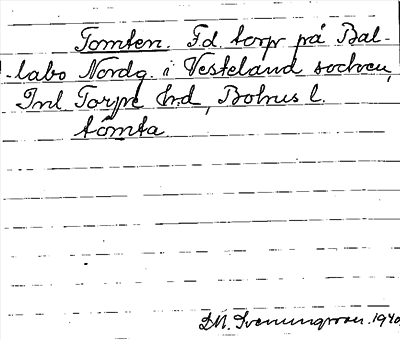 Tomten. F.d. torp på Bal-
labo Nordg. i Vesteland socken,
Inl Torpe hd, Bohus l.
tômta
D.N. Svenungsson. 1940